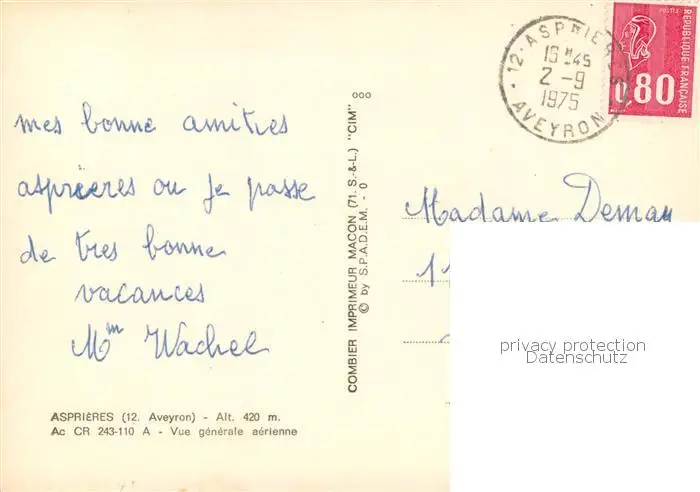 mes bonne amitres
asprieres ou Je passe
de tres bonne
vacances
Mm Wachel
ASPRIÈRES (12. Aveyron) - Alt. 420 m.
Ac CR 243-110 A - Vue générale aérienne
COMBIER IMPRIMEUR MACON (71. S.-&-L.) "CIM"
© by S.P.A.D.E.M. - 0
12 - ASPRIERES
16 H 45
2 - 9
1975
AVEYRON
REPUBLIQUE FRANÇAISE
0,80
Madame
privacy protection
Datenschutz